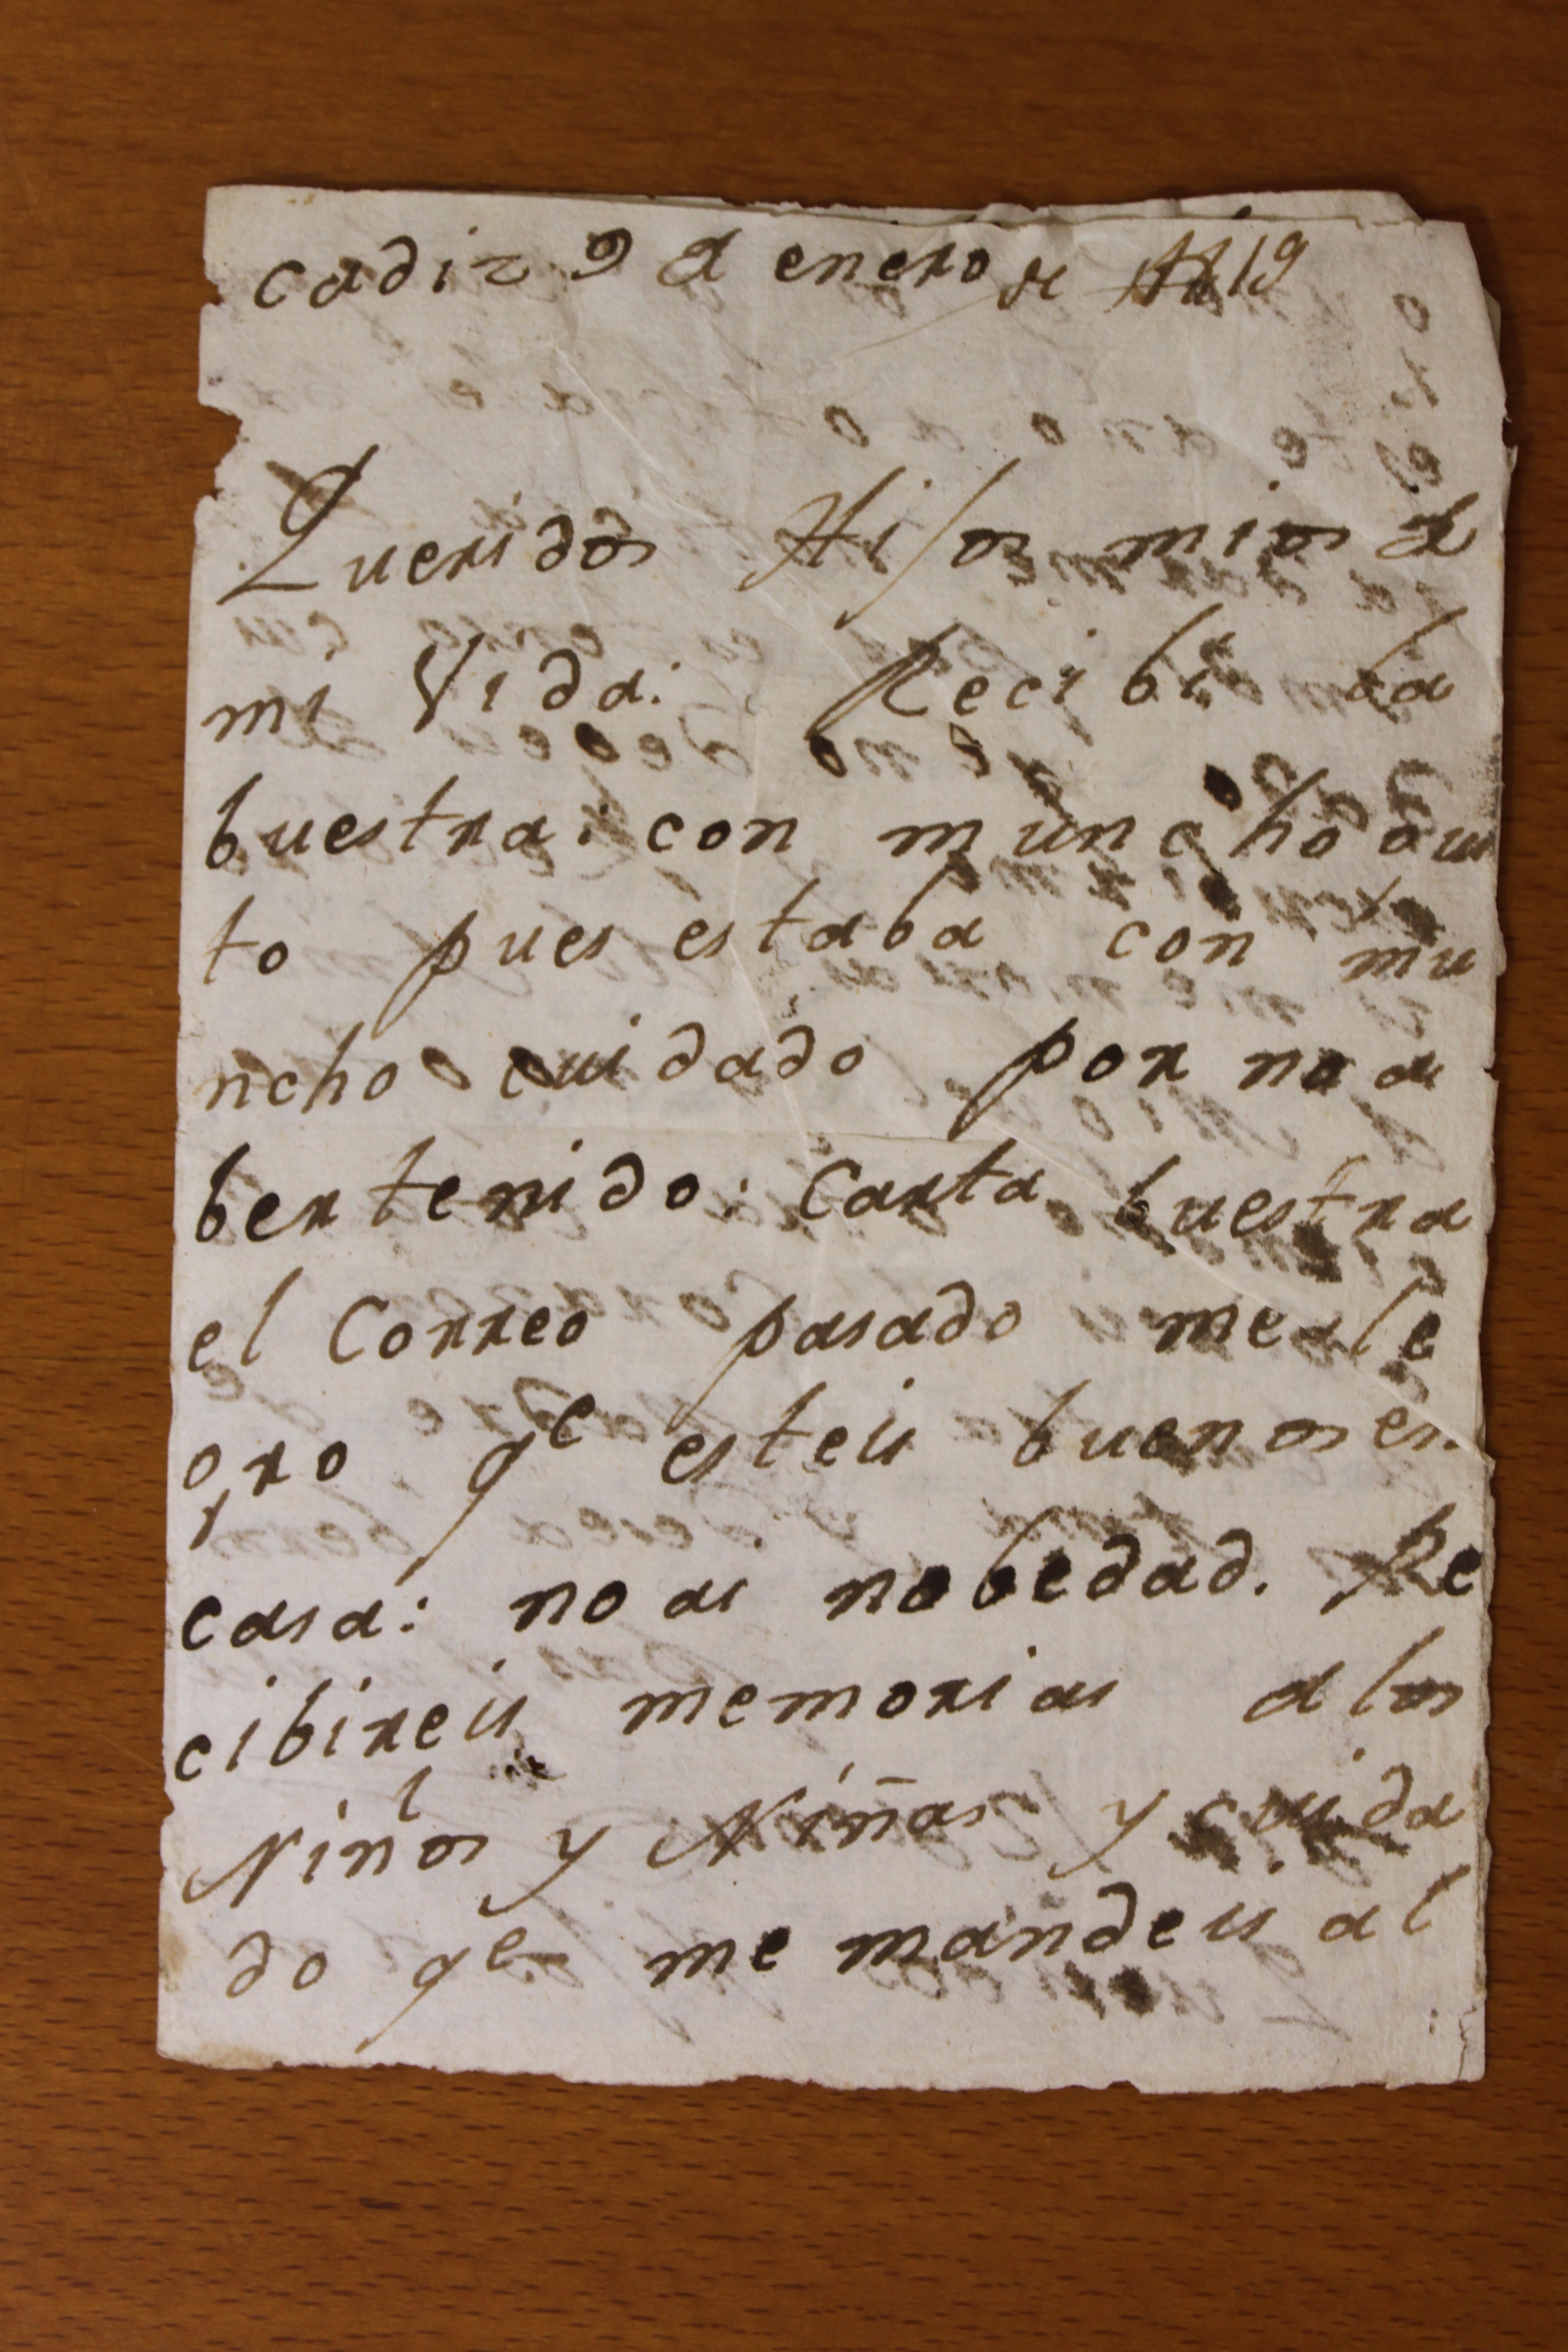 cadiz 9 d enero de 1819
Queridos Hijos mios d
mi Vida: Recibi la
buestra: con muncho gus
to pues estaba con mu
ncho cuidado por no a
ber tenido: Carta buestra
el Correo pasado me ale
gro qe esteis buenos en
casa: no ai nobedad. Re
cibireis memorias a los
Niños y Niñas y cuida
do qe me mandeis al